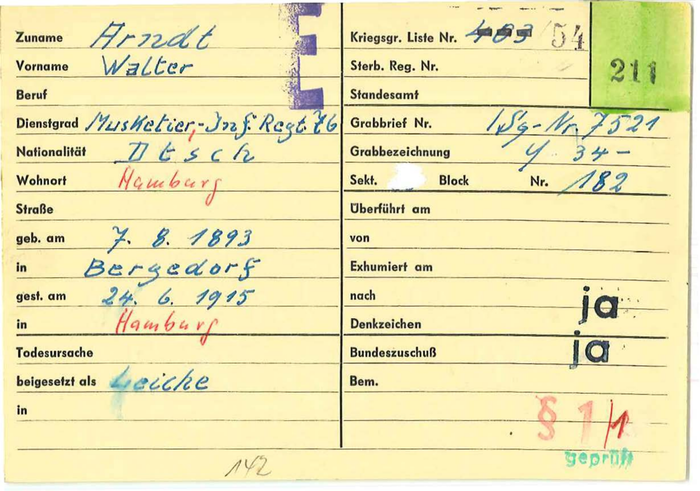 E
Zuname Arndt
Vorname Walter
Beruf
Dienstgrad Musketier,-Inf. Regt. 76
Nationalität Dtsch
Wohnort Hamburg
Straße
geb. am 7. 8. 1893
in Bergedorf
gest. am 24. 6. 1915
in Hamburg
Todesursache
beigesetzt als Leiche
in
142
Kriegsgr. Liste Nr. 483 54
211
Sterb. Reg. Nr.
Standesamt
Grabbrief Nr. ISg-Nr. 7521
Grabbezeichnung Y 34-
Sekt. Block Nr. 182
Überführt am
von
Exhumiert am
nach
ja
Denkzeichen
Bundeszuschuß ja
Bem.
§ 1/1
geprüft